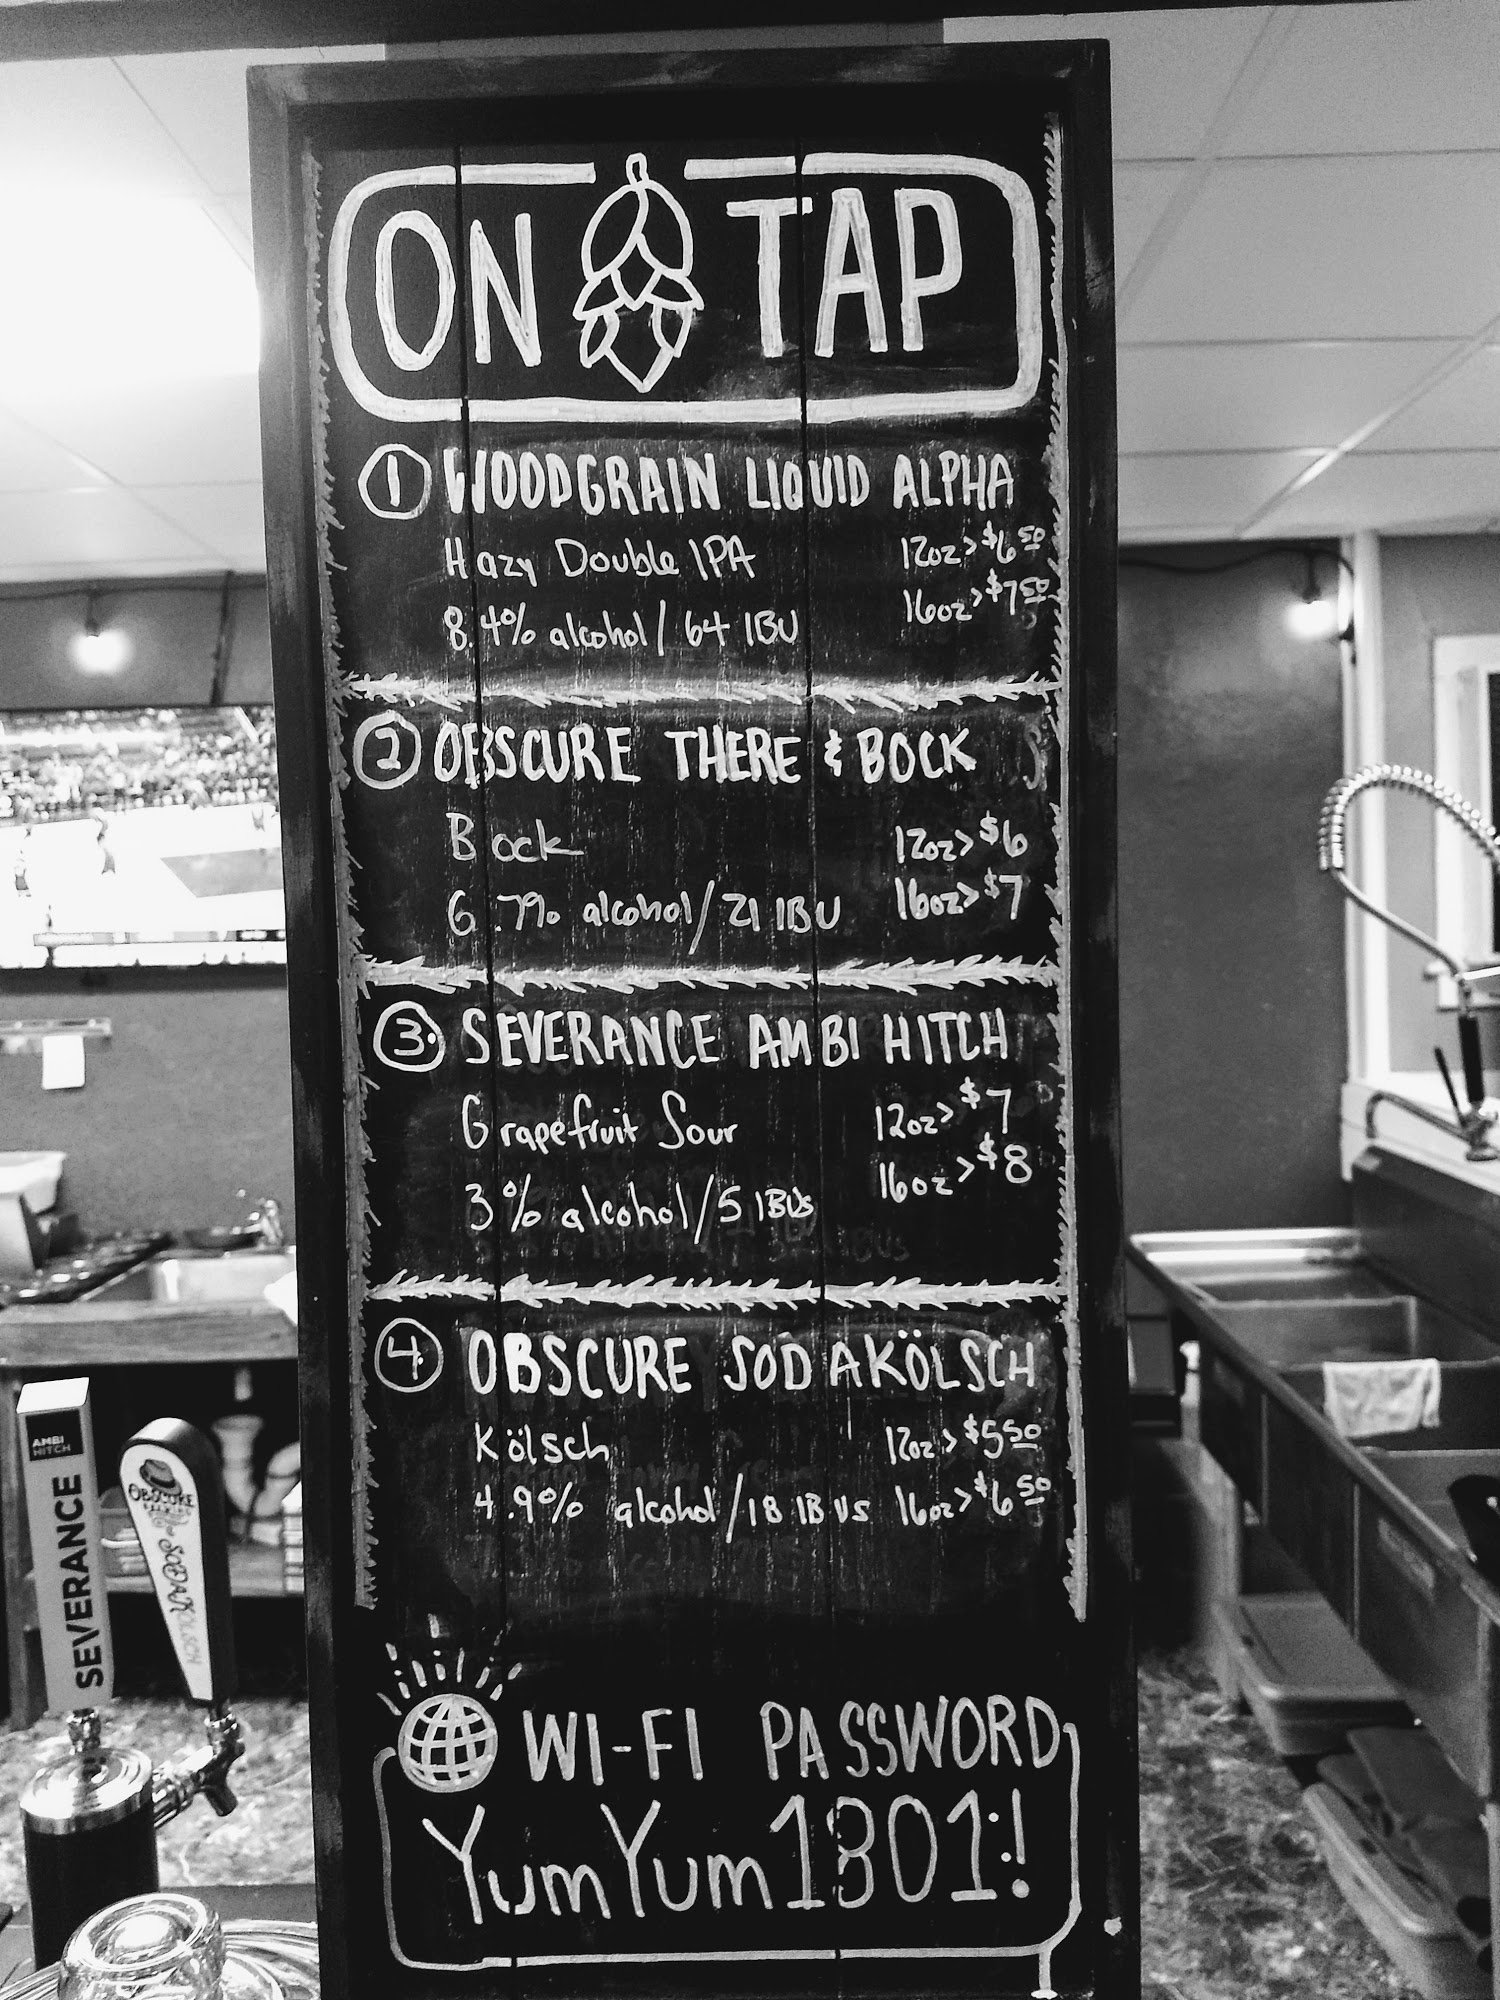 ON TAP
1 WOODGRAIN LIQUID ALPHA
Hazy Double IPA 12oz > $6 50
8.4% alcohol / 64 IBU 16oz > $7 50
2 OBSCURE THERE & BOCK
Bock 12oz > $6
6.7% alcohol / 21 IBU 16oz > $7
3 SEVERANCE AMBI HITCH
Grapefruit Sour 12oz > $7
3% alcohol / 5 IBUs 16oz > $8
4 OBSCURE SODAKÖLSCH
Kölsch 12oz > $5 50
4.9% alcohol / 18 IBUs 16oz > $6 50
WI-FI PASSWORD
YumYum1301!
AMBI
HITCH
SEVERANCE
OBSCURE
SODAKÖLSCH